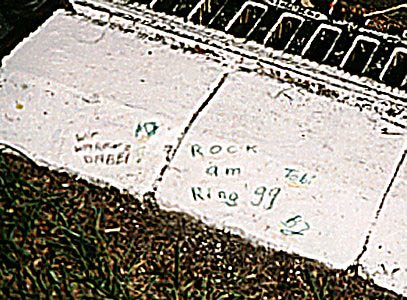 WIR
WAREN
DABEI
ROCK
am
Ring '99
Tobi